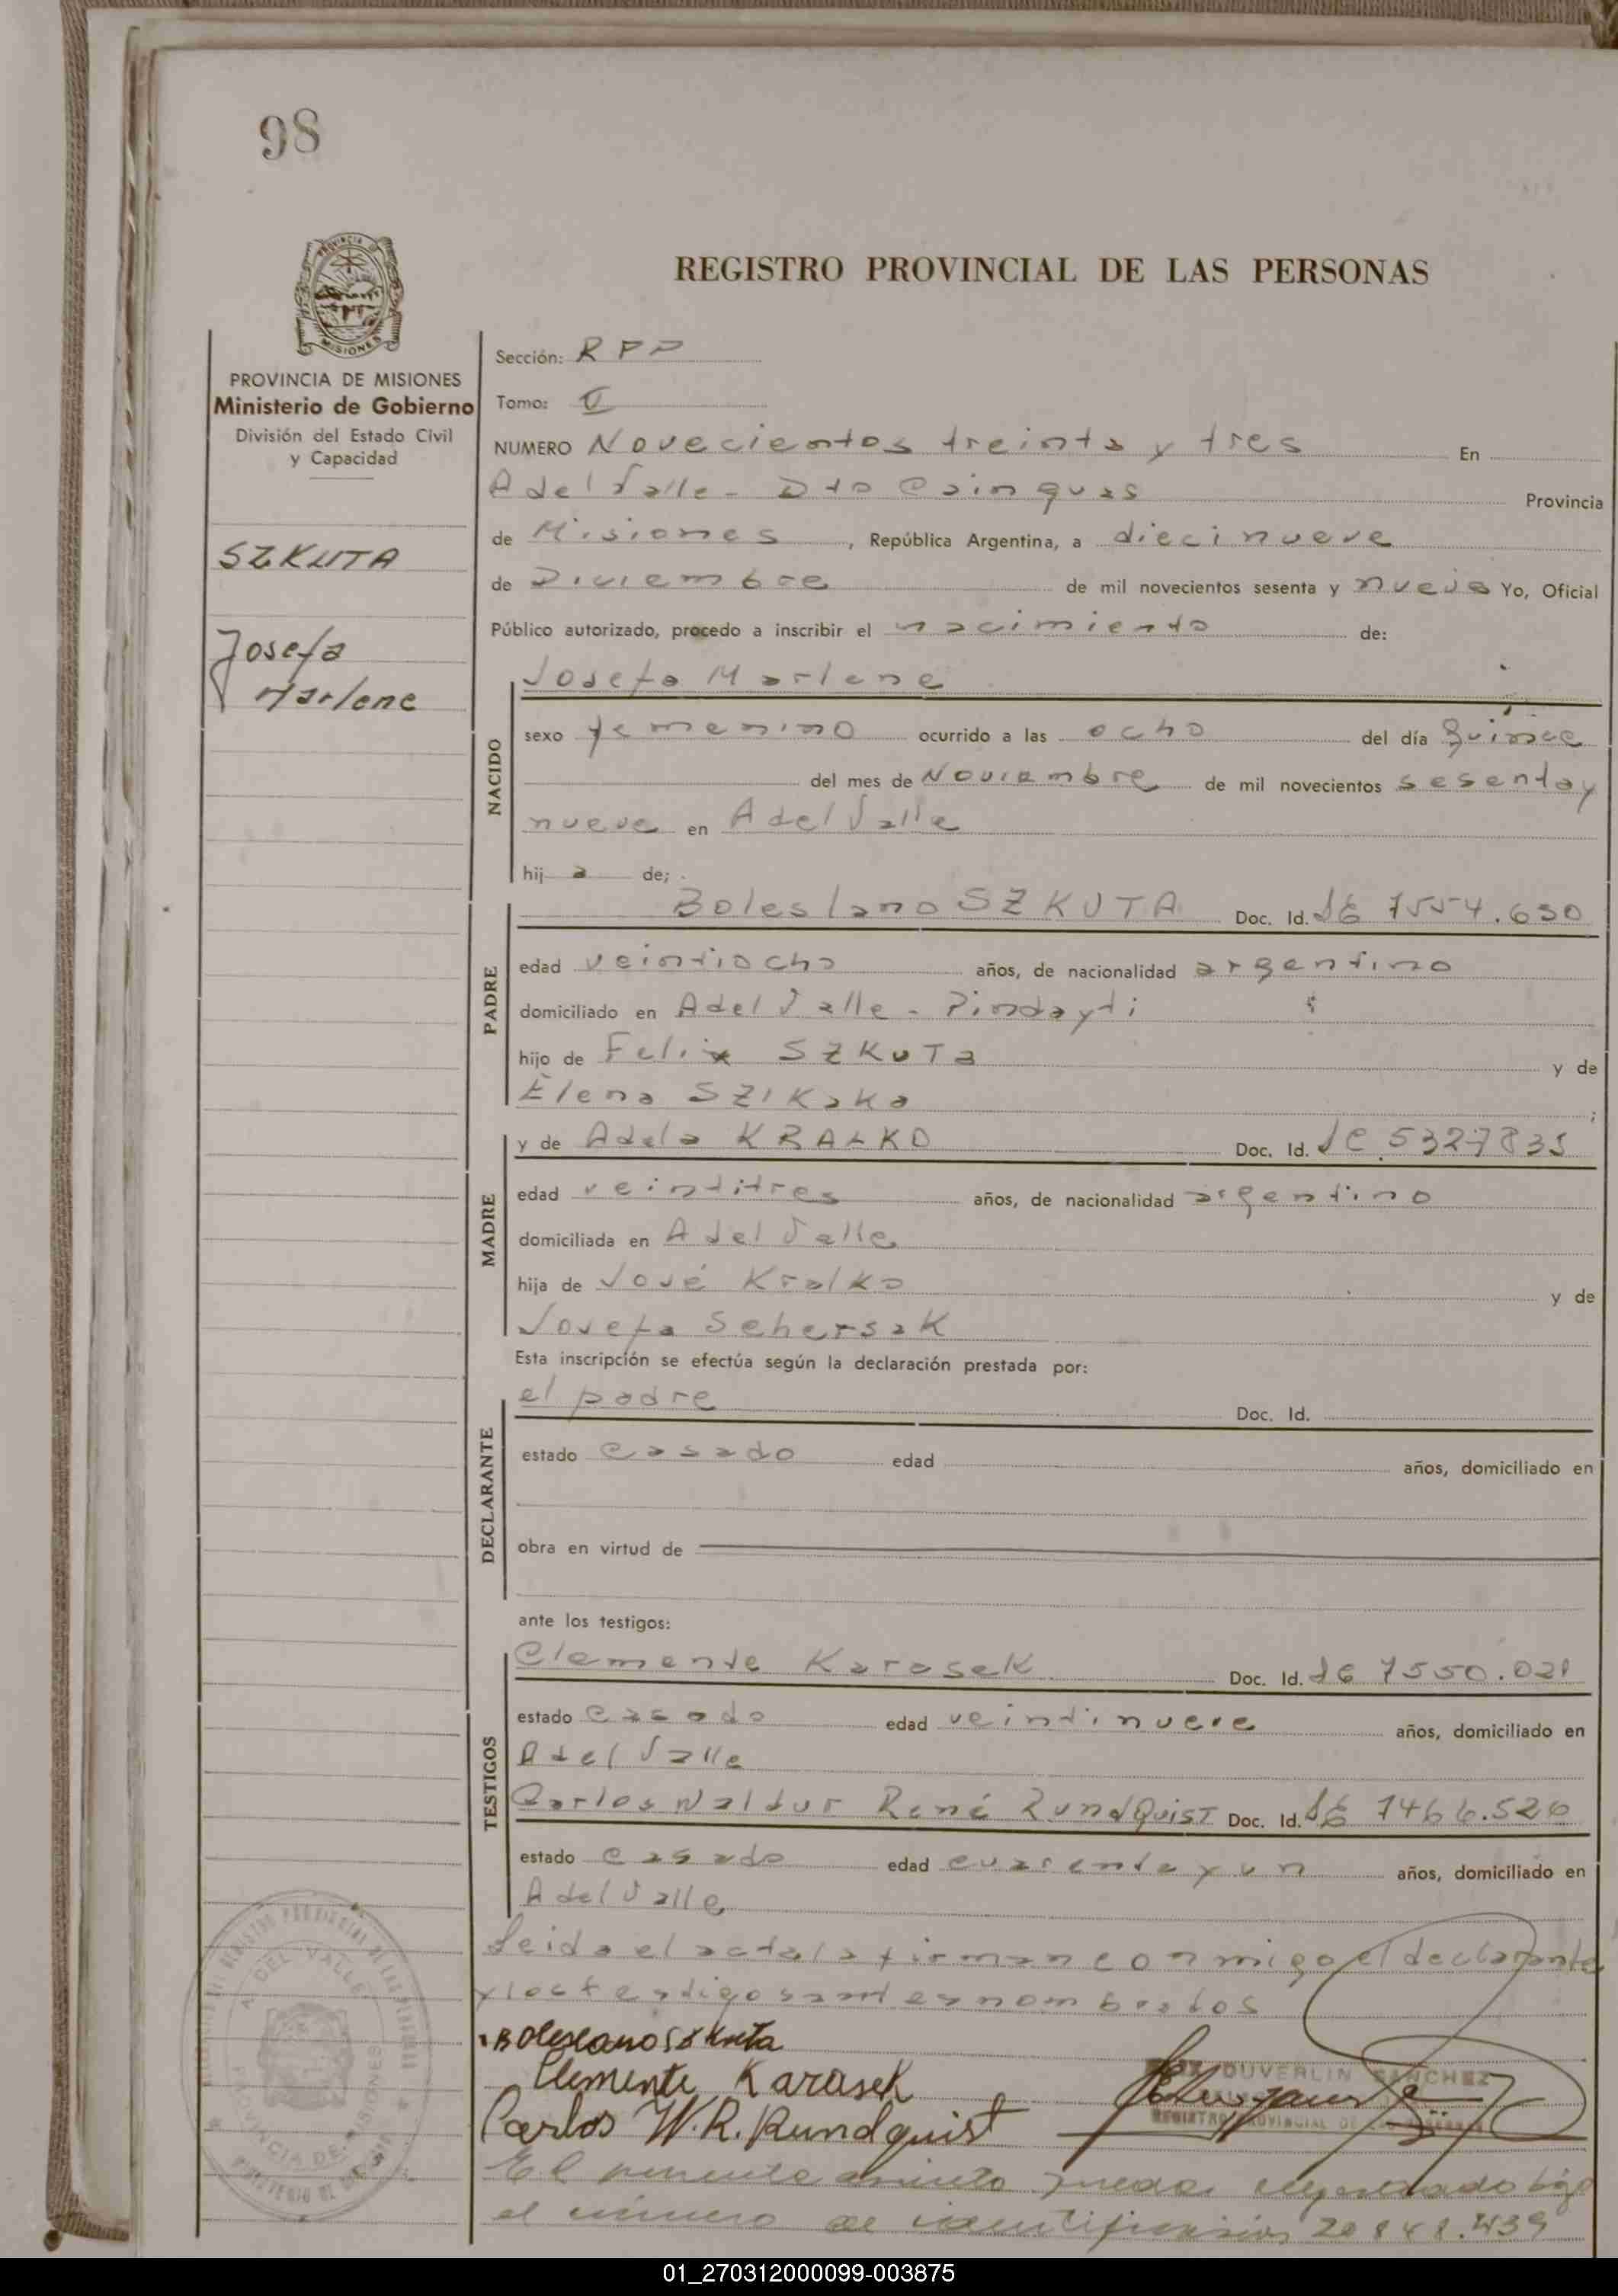 98
REGISTRO PROVINCIAL DE LAS PERSONAS
PROVINCIA DE MISIONES
Ministerio de Gobierno
División del Estado Civil
y Capacidad
SZKUTA
Josefa
Marlene
Sección: RPP
Tomo: V
NUMERO Novecientos treinta y tres En
A del Valle - Dto Cainguas Provincia
de Misiones, República Argentina, a diecinueve
de Diciembre de mil novecientos sesenta y nueve Yo, Oficial
Público autorizado, procedo a inscribir el nacimiento de:
Josefa Marlene
NACIDO
sexo femenino ocurrido a las ocho del día Quince
del mes de Noviembre de mil novecientos sesenta y
nueve en A del Valle
hij a de;
PADRE
Boleslano SZKUTA Doc. Id. LE 7554.650
edad veintiocho años, de nacionalidad argentino
domiciliado en A del Valle - Pindayti
hijo de Felix SZKUTa y de
Elena SZIKaKa ;
MADRE
y de Adela KRALKO Doc. Id. LC 5327835
edad veintitres años, de nacionalidad argentino
domiciliada en A del Valle
hija de José Kralko y de
Josefa Sehersak
Esta inscripción se efectúa según la declaración prestada por:
DECLARANTE
el padre Doc. Id.
estado casado edad años, domiciliado en
obra en virtud de
ante los testigos:
TESTIGOS
Clemente Karosek Doc. Id. LE 7550.021
estado casado edad veintinueve años, domiciliado en
A del Valle
Carlos Waldur René Rundquist Doc. Id. LE 7466.526
estado casado edad cuarenta y un años, domiciliado en
A del Valle
Leida el acta la firman conmigo el declarante
y los testigos antes nombrados
Boleslano Szkuta
Clemente Karasek
Carlos W. R. Rundquist
DUVERLIN SANCHEZ
REGISTRO PROVINCIAL DE LAS PERSONAS
A. DEL VALLE
PROVINCIA DE MISIONES
El presente asiento queda registrado bajo
el número de identificación 20848.439
01_270312000099-003875